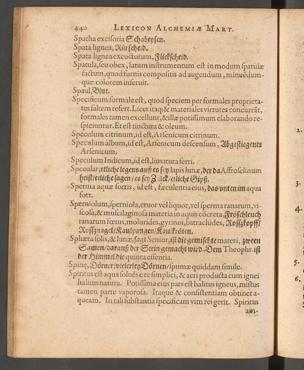 440 LEXICON ALCHEMIÆ MART.
Spatha excisoria Schabeysen.
Spata lignea, Rürscheid.
Spata lignea excocturum, Flickscheid.
Spatula, seu obex, latum instrumentum est in modum spatulæ
factum, quod furnis compositis ad augendum, minuendum-
que colorem inseruit.
Spaul, Blut.
Specificum formale est, quod speciem per formales proprieta-
tes saltem refert. Licet itaq; & materiales virtutes concurrāt,
formales tamen excellunt, & illæ potissimum elaborando re-
spiciuntur. Et est tinctura & oleum.
Speculum citrinum, id est, Arsenicum citrinum.
Speculum album, id est, Arsenicum descensum, Abgestiegener
Arsenicum.
Speculum Indicum, id est, limatura ferri.
Specular, etliche legens auß es sey lapis lunæ, der da Affroselinum
heist
Sperma aquæ fortis, id est, fæculentia eius, das unten im aqua
fort.
Spermiolum, spermiola, cruor vel liquor, vel sperma ranarum, vi-
scosa, & muscilaginosa materia in aquis concreta, Fröschleuch
ranarum fœtus, molurides, gyrinus, batrachides, Roßkopff/
Roßznagel/ Kaulpangen/ Kaulkröten.
Sphæra solis, & lunæ, sagt Senior, ist die gemischte materi, zween
Samen/ darauß der Stein gemacht wird. Dem Theophr. ist
der Himmel die quinta essentia.
Spinæ, Dörner/ vielerley Dörnen/ spumæ quiddam simile.
Spiritus est aqua solutiō e re simplici, & aeri producta cum ignei
halitus natura. Potissima eius pars est halitus igneus, mistus
tamen parte vaporosa. Itaque & consistentiam obtinet a-
queam. In tali substantia specificam vim rei gerit. Spiritus